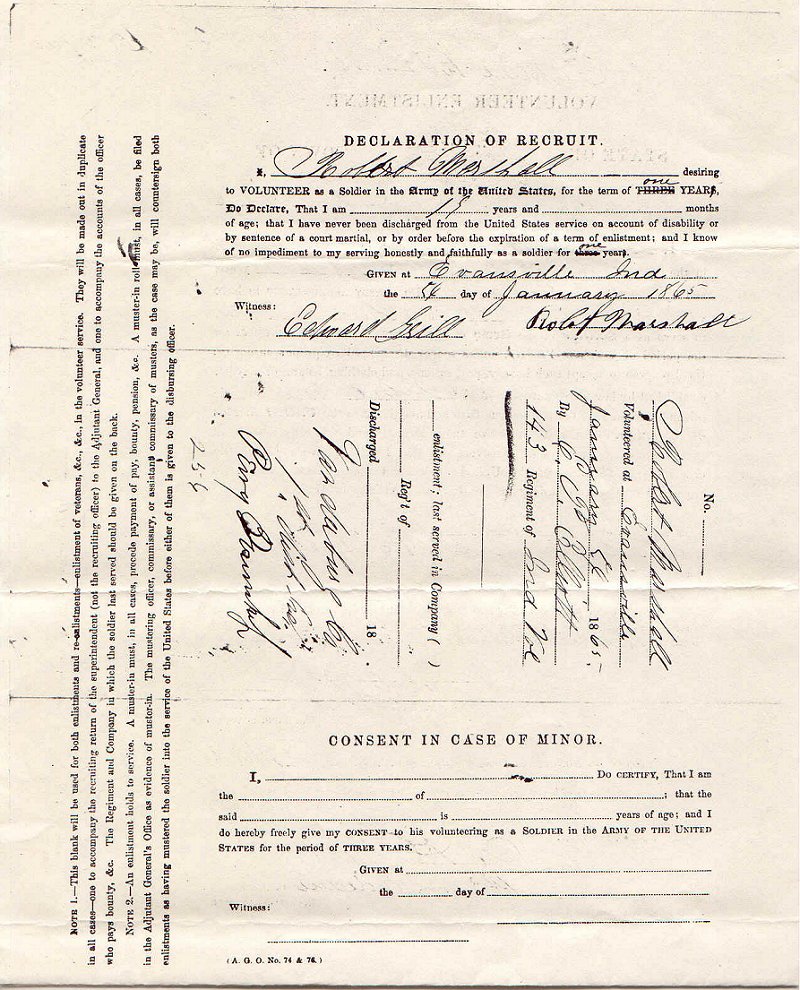 VOLUNTEER ENLISTMENT.
DECLARATION OF RECRUIT.
I, Robert Marshall desiring
to VOLUNTEER as a Soldier in the Army of the United States, for the term of THREE one YEARS,
Do Declare, That I am 19 years and months
of age; that I have never been discharged from the United States service on account of disability or
by sentence of a court martial, or by order before the expiration of a term of enlistment; and I know
of no impediment to my serving honestly and faithfully as a soldier for three one years.
GIVEN at Evansville Ind
the day of January 1865
Witness:
Edward Robt Marshall
No.
Robert Marshall
Volunteered at Evansville
January 1865
By
143 Regiment of Ind Vol
enlistment; last served in Company ( )
Reg't of
Discharged 18 .
CONSENT IN CASE OF MINOR.
I, DO CERTIFY, That I am
the of ; that the
said is years of age; and I
do hereby freely give my CONSENT to his volunteering as a SOLDIER in the ARMY OF THE UNITED
STATES for the period of THREE YEARS.
GIVEN at
the day of
Witness:
(A. G. O. No. 74 & 76.)
NOTE 1.—This blank will be used for both enlistments and re-enlistments—enlistment of veterans, &c., &c., in the volunteer service. They will be made out in duplicate
in all cases—one to accompany the recruiting return of the superintendent (not the recruiting officer) to the Adjutant General, and one to accompany the accounts of the officer
who pays bounty, &c. The Regiment and Company in which the soldier last served should be given on the back.
NOTE 2.—An enlistment holds to service. A muster-in must, in all cases, precede payment of pay, bounty, pension, &c. A muster-in roll must, in all cases, be filed
in the Adjutant General's Office as evidence of muster-in. The mustering officer, commissary, or assistant commissary of musters, as the case may be, will countersign both
enlistments as having mustered the soldier into the service of the United States before either of them is given to the disbursing officer.